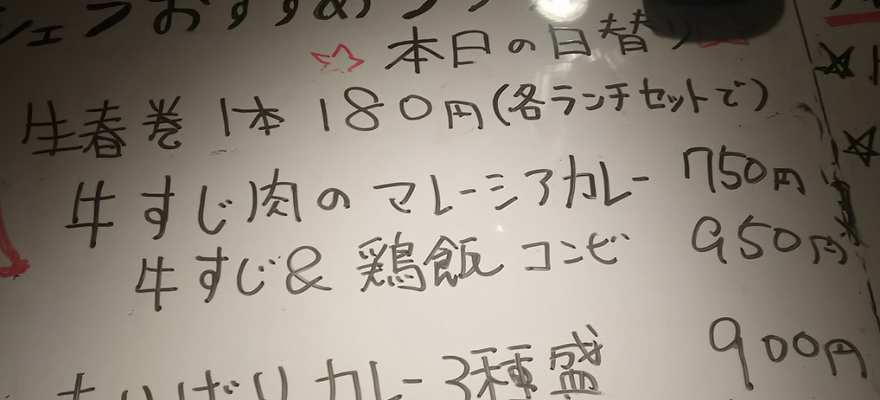 シェフおすすめ
☆ 本日の日替り
生春巻 1本 180円(各ランチセットで)
牛すじ肉のマレーシアカレー 750円
牛すじ&鶏飯コンビ 950円
カレー3種盛 900円